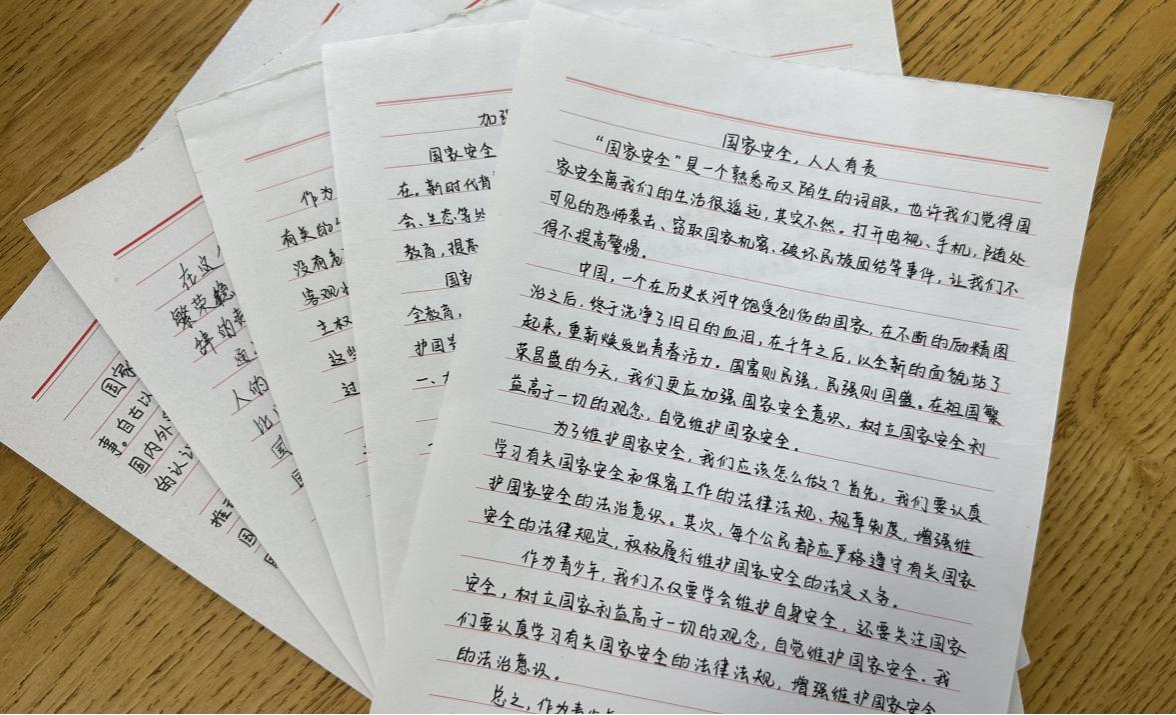 国家安全，人人有责
“国家安全”是一个熟悉而又陌生的词眼，也许我们觉得国
家安全离我们的生活很遥远，其实不然。打开电视、手机，随处
可见的恐怖袭击、窃取国家机密、破坏民族团结等事件，让我们不
得不提高警惕。
中国，一个在历史长河中饱受创伤的国家，在不断的励精图
治之后，终于洗净了旧日的血泪，在千年之后，以全新的面貌站了
起来，重新焕发出青春活力。国富则民强，民强则国盛。在祖国繁
荣昌盛的今天，我们更应加强国家安全意识，树立国家安全利
益高于一切的观念，自觉维护国家安全。
为了维护国家安全，我们应该怎么做？首先，我们要认真
学习有关国家安全和保密工作的法律法规、规章制度，增强维
护国家安全的法治意识。其次，每个公民都应严格遵守有关国家
安全的法律规定，积极履行维护国家安全的法定义务。
作为青少年，我们不仅要学会维护自身安全，还要关注国家
安全，树立国家利益高于一切的观念，自觉维护国家安全。我
们要认真学习有关国家安全的法律法规，增强维护国家安全
的法治意识。
总之，作为青少年
加强
国家安全
在。新时代肖
会、生态等处
教育，提高
国家
全教育，
护国家
一、
作为
有关的
没有危
客观
主权
这些
过
在这
繁荣稳
锌的
通
人的
比
国
国
国家
事。自古以
国内外
的认识
推
国